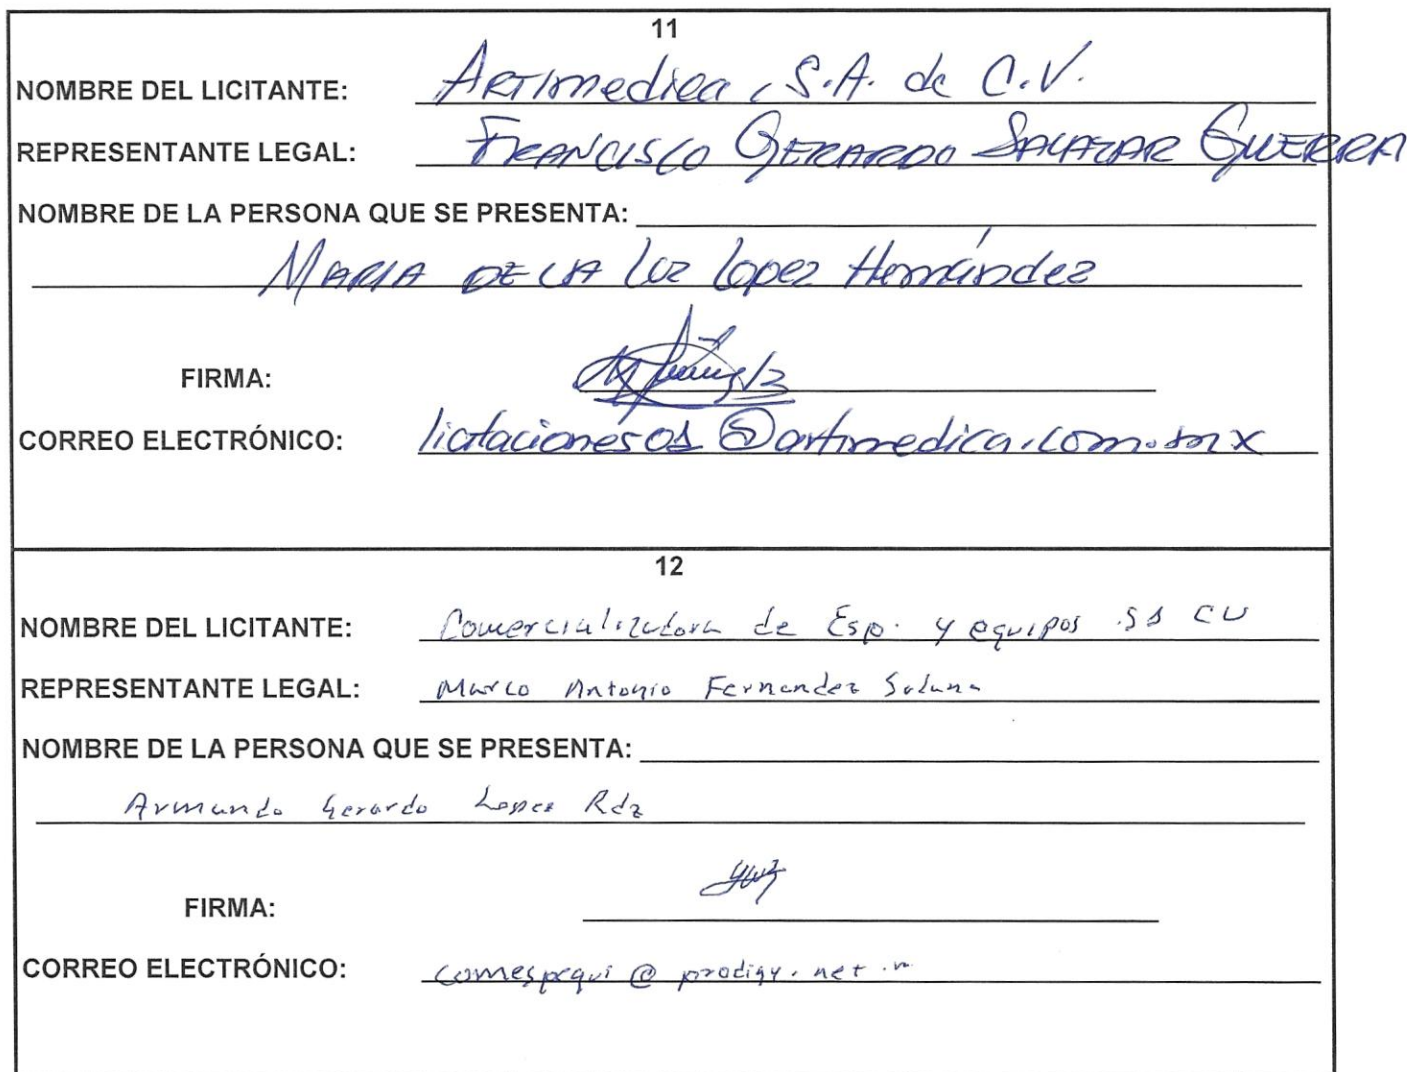 11
NOMBRE DEL LICITANTE: Artimedica, S.A. de C.V.
REPRESENTANTE LEGAL: FRANCISCO GERARDO SALAZAR GUERRA
NOMBRE DE LA PERSONA QUE SE PRESENTA:
MARIA DE LA Luz Lopez Hernández
FIRMA:
CORREO ELECTRÓNICO: licitaciones01@artimedica.com.mx
12
NOMBRE DEL LICITANTE: Comercializadora de Esp. y equipos SA CV
REPRESENTANTE LEGAL: Marco Antonio Fernandez
NOMBRE DE LA PERSONA QUE SE PRESENTA:
Armando Gerardo Lopez Rdz
FIRMA:
CORREO ELECTRÓNICO: comespequi@prodigy.net.m